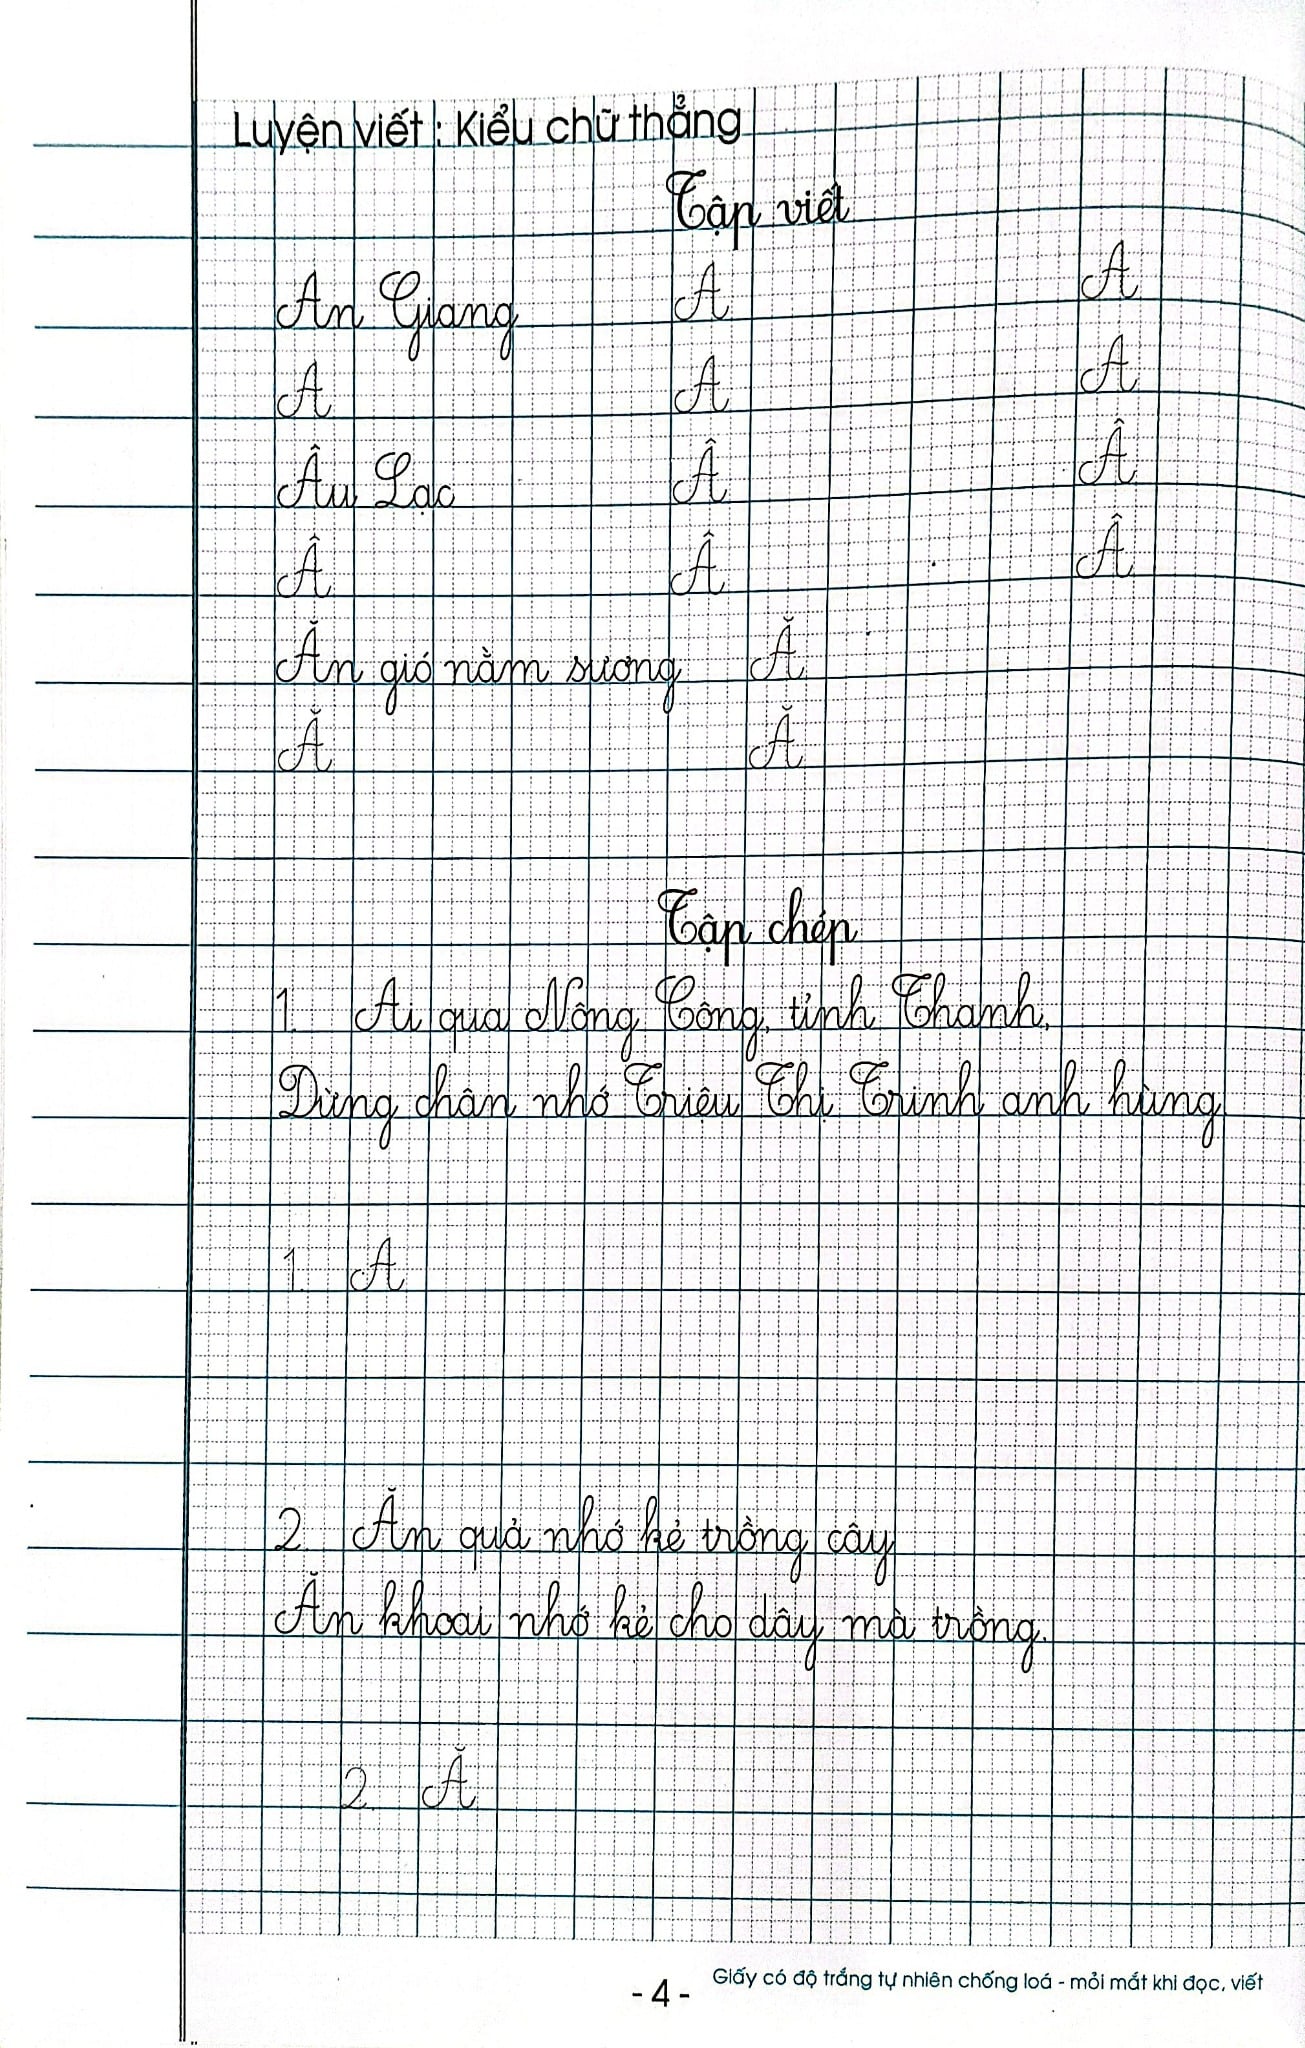 Luyện viết : Kiểu chữ thẳng
Tập viết
An Giang A A
A A A
Âu Lạc Â Â
Â Â Â
Ăn gió nằm sương Ă
Ă Ă
Tập chép
1. Ai qua Nông Cống, tỉnh Thanh,
Dừng chân nhớ Triệu Thị Trinh anh hùng
1. A
2. Ăn quả nhớ kẻ trồng cây
Ăn khoai nhớ kẻ cho dây mà trồng.
2. Ă
- 4 -
Giấy có độ trắng tự nhiên chống loá - mỏi mắt khi đọc, viết